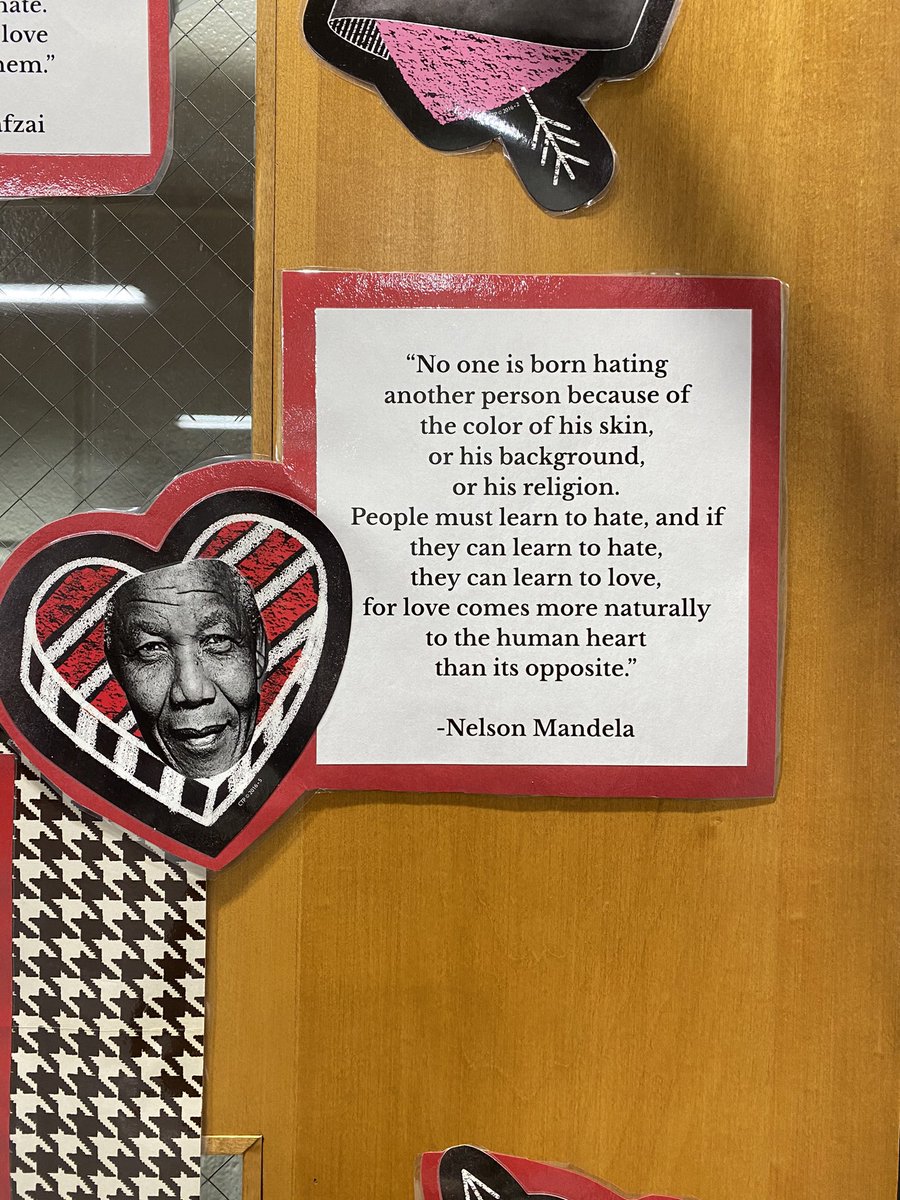 hate.
love
hem.”
afzai
CTP © 2016 - 2
“No one is born hating
another person because of
the color of his skin,
or his background,
or his religion.
People must learn to hate, and if
they can learn to hate,
they can learn to love,
for love comes more naturally
to the human heart
than its opposite.”
-Nelson Mandela
CTP © 2016 - 5